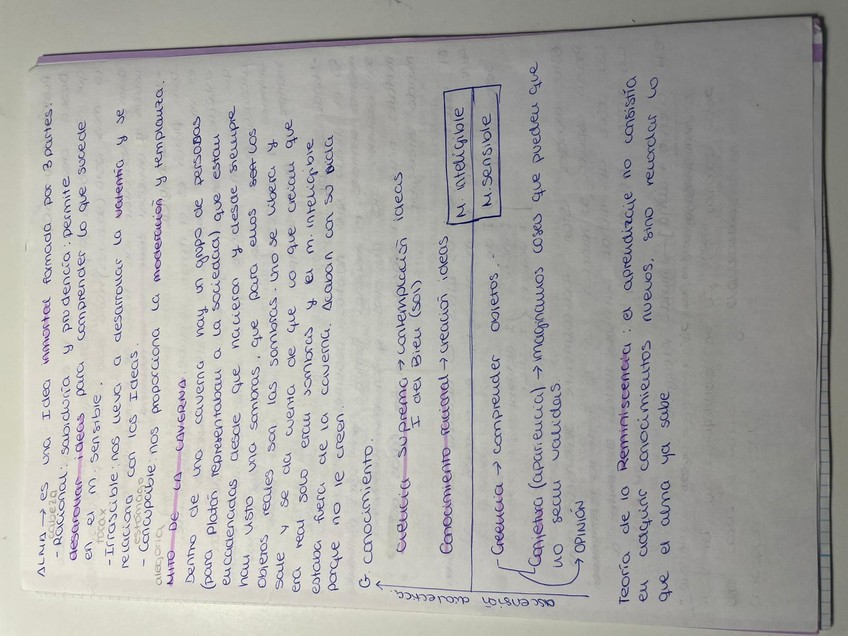 ALMA → es una Idea inmortal formada por 3 partes:
cabeza
- Racional: sabiduría y prudencia: permite
desarrollar ideas para comprender lo que sucede
en el m. sensible.
tórax
- Irrascible: nos lleva a desarrollar la valentía y se
relaciona con las Ideas.
estómago
- Concupcible: nos proporciona la moderación y templanza.
alegoría
MITO DE LA CAVERNA
Dentro de una caverna hay un grupo de personas
(para Platón representaban a la sociedad) que estan
encadenadas desde que nacieron y desde siempre
han visto una sombras, que para ellos son los
objetos reales son las sombras. Uno se libera y
sale y se da cuenta de que lo que creían que
era real solo eran sombras y el m. inteligible
estaba fuera de la caverna. Acaban con su vida
porque no le creen.
G. conocimiento.
ciencia suprema → contemplación ideas
I del Bien (sol)
Conocimiento racional → creación ideas
M. inteligible
M. Sensible
Creencia → comprender objetos.
Conjetura (apariencia) → imaginamos cosas que pueden que
no sean validas
→ OPINIÓN
ascensión dialectica
Teoría de la Reminiscencia: el aprendizaje no consistía
en adquirir conocimientos nuevos, sino recordar lo
que el alma ya sabe